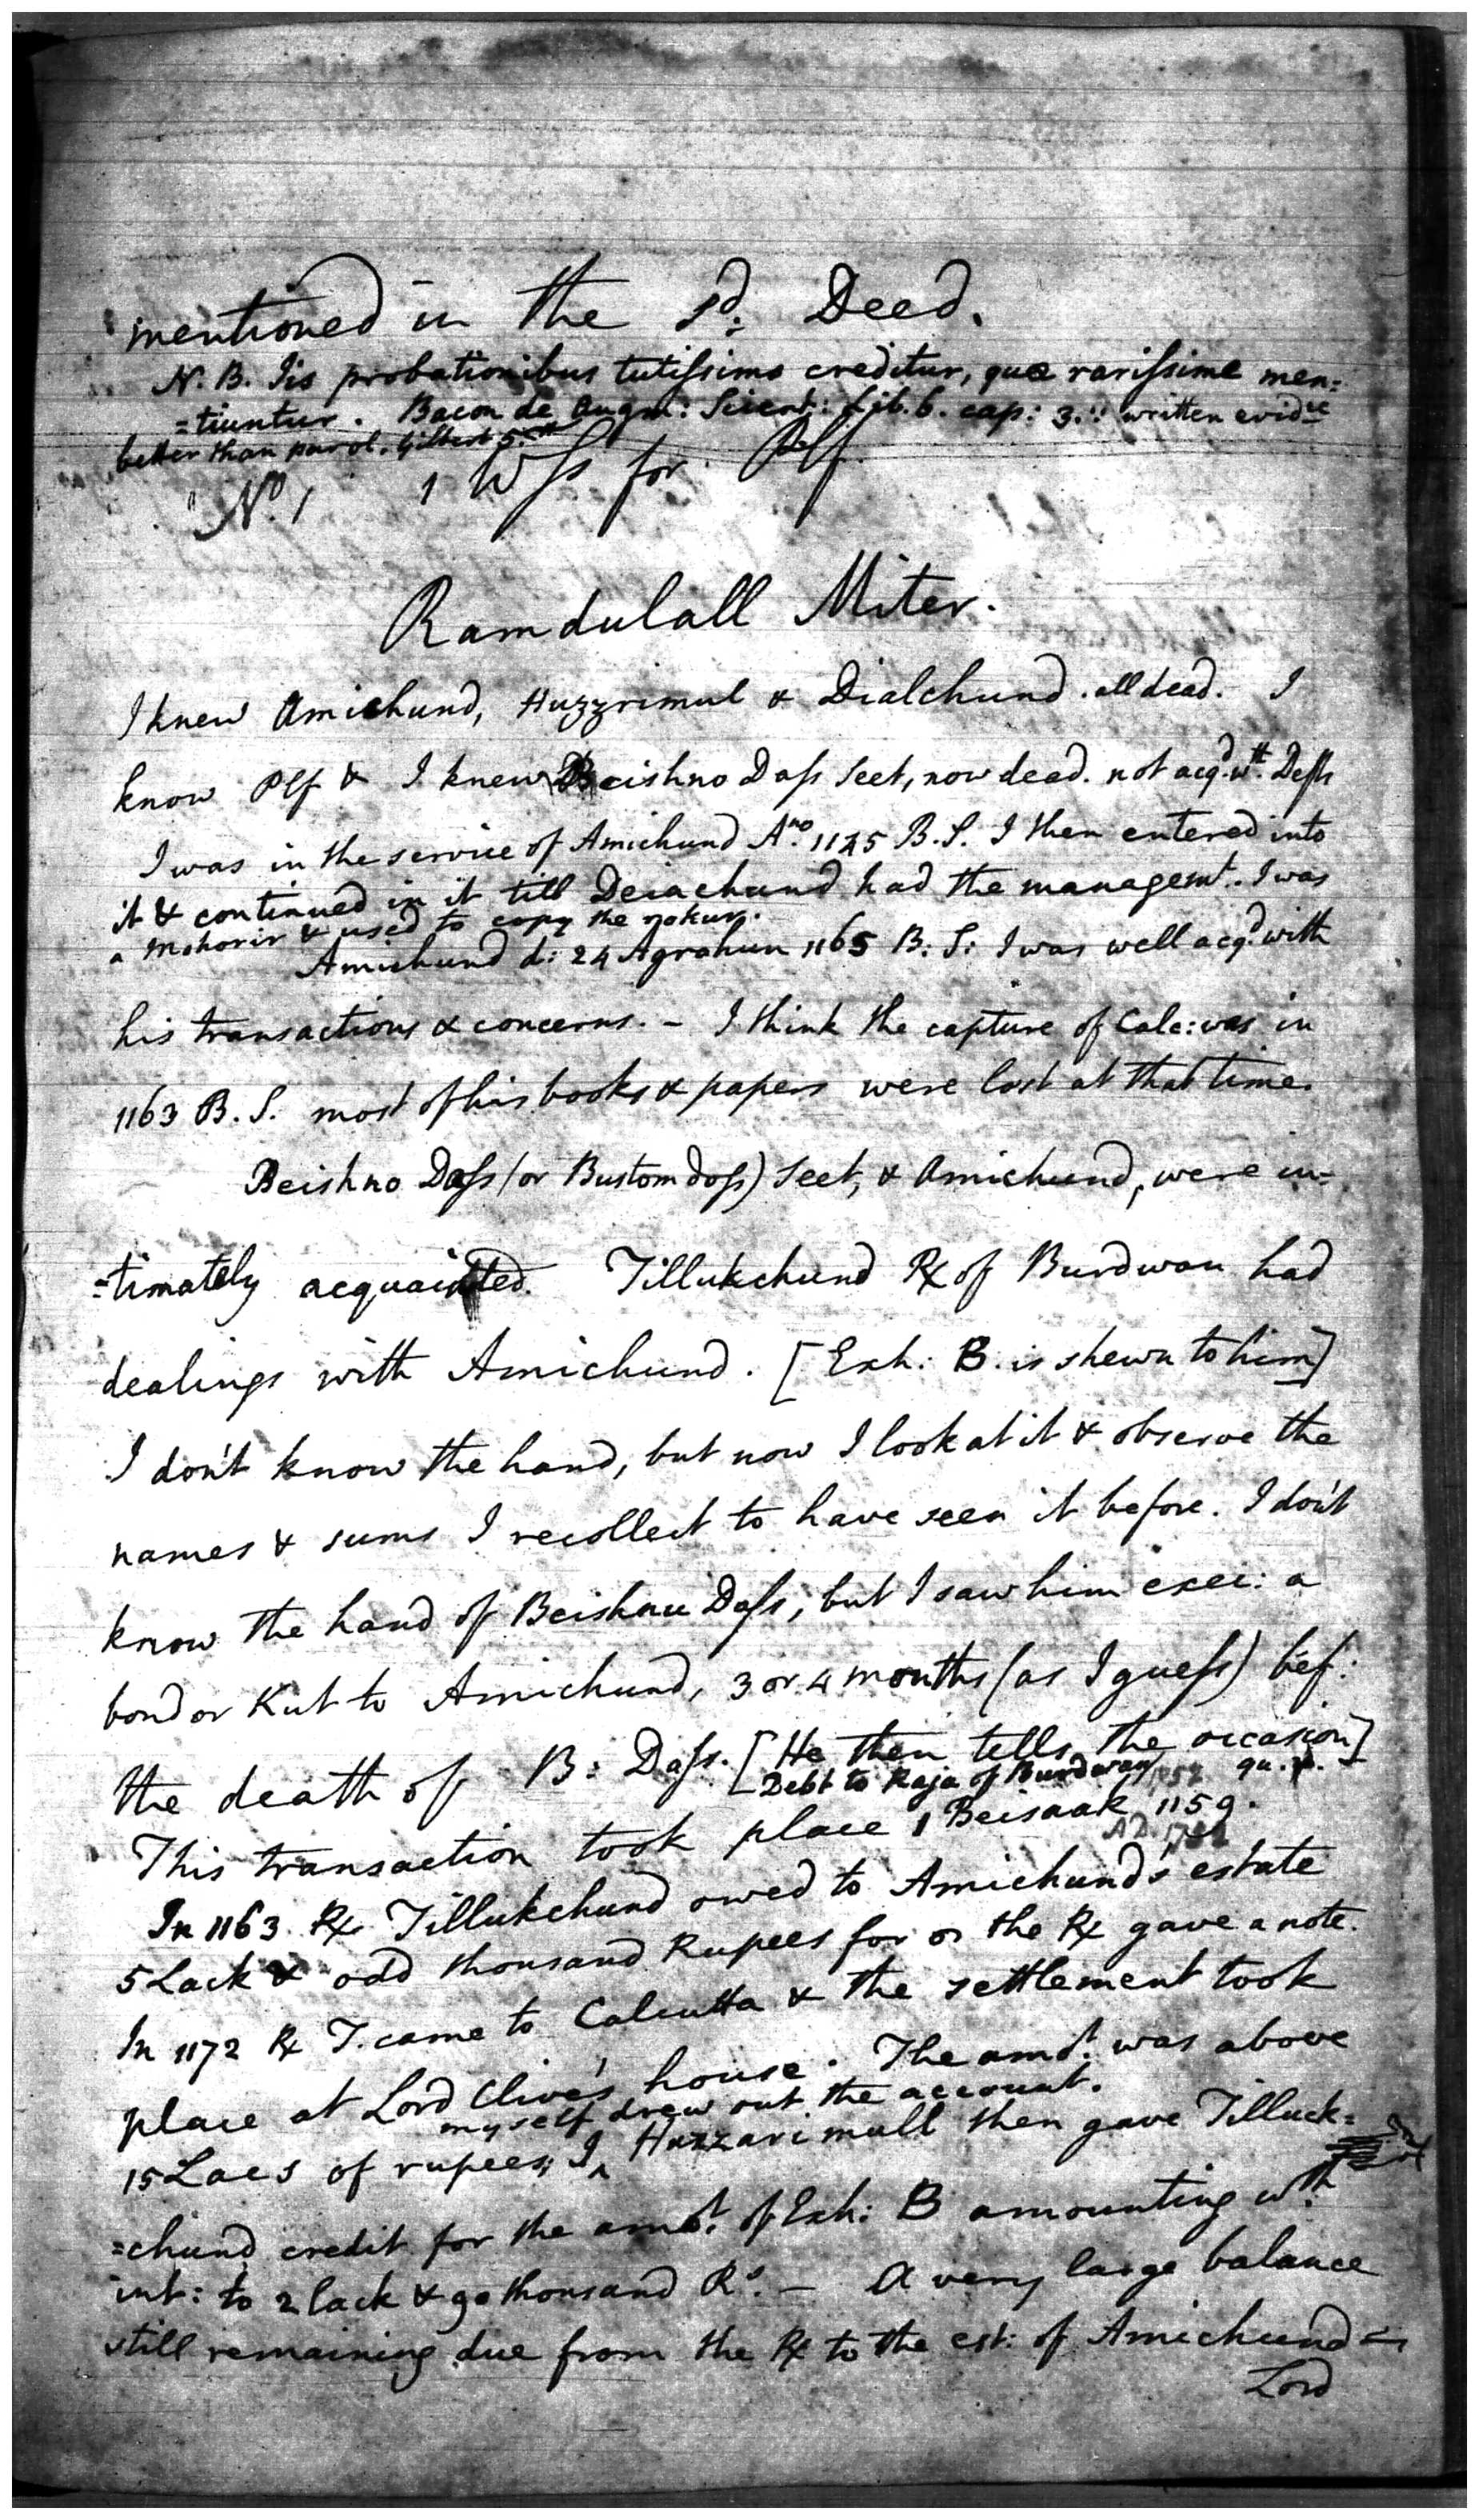 mentioned in the sd. Deed.
N. B. Iis probationibus tutissimo creditur, quæ rarissime men=
=tiuntur. Bacon de Augm: Scient: Lib. 6. cap: 3.: written evidce
better than parol. Gilbert 5.
No. 1 1 Wss for Plf
Ramdulall Miter.
I knew Amichund, Huzzrimul & Dialchund. all dead. I
know Plf & I knew Beishno Dass Seet, now dead. not acqd. wth. Defts
I was in the service of Amichund Ano. 1145 B.S. I then entered into
it & continued in it till Deiachund had the managemt. I was
a Mohorir & used to copy the rokur.
Amichund d: 24 Agrahun 1165 B: S: I was well acqd. with
his transactions & concerns. - I think the capture of Calc: was in
1163 B. S. most of his books & papers were lost at that time.
Beishno Dass (or Bustomdoss) Seet, & Amichund, were in=
=timately acquainted. Tillukchund Rx of Burdwan had
dealings with Amichund. [Exh: B. is shewn to him]
I don't know the hand, but now I look at it & observe the
names & sums I recollect to have seen it before. I don't
know the hand of Beishnu Dass, but I saw him exec: a
bond or Kut to Amichund, 3 or 4 months (as I guess) bef:
the death of B: Dass. [He then tells the occasion]
Debt to Raja of Burdwan qu.
This transaction took place 1 Beisaak 1159.
A.D. 1752
In 1163 Rx Tillukchund owed to Amichund's estate
5 Lack & odd thousand Rupees for or the Rx gave a note.
In 1172 Rx T. came to Calcutta & the settlement took
place at Lord Clive's house. The amot. was above
myself drew out the account.
15 Lacs of rupees; I ‸ Huzzarimull then gave Tilluck=
=chund credit for the amot. of Exh: B amounting wth
int: to 2 lack & 90 thousand Rs. - A very large balance
still remaining due from the Rx to the est: of Amichund -
Lord